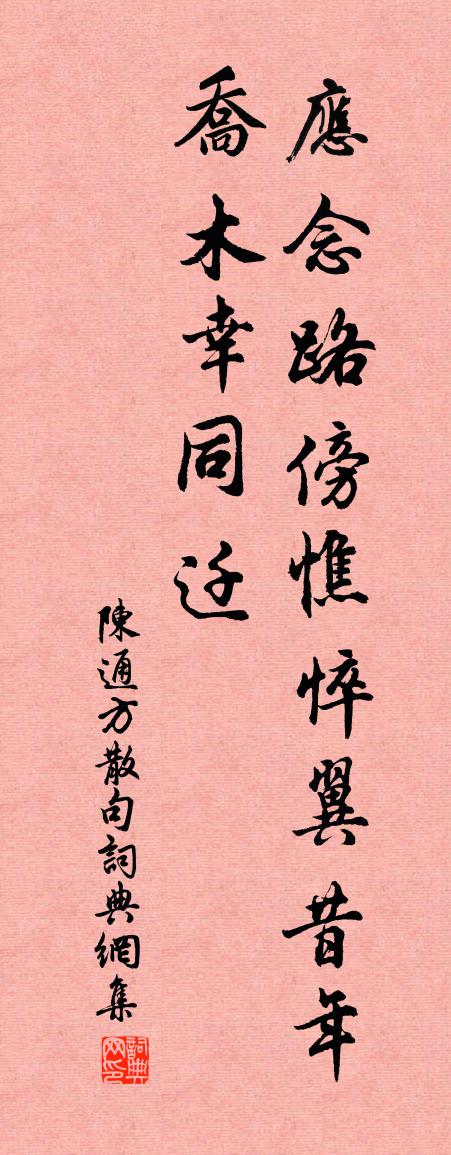 應念路傍憔悴翼昔年
喬木幸同迁
陳通方散句詞典網集
詞典网印